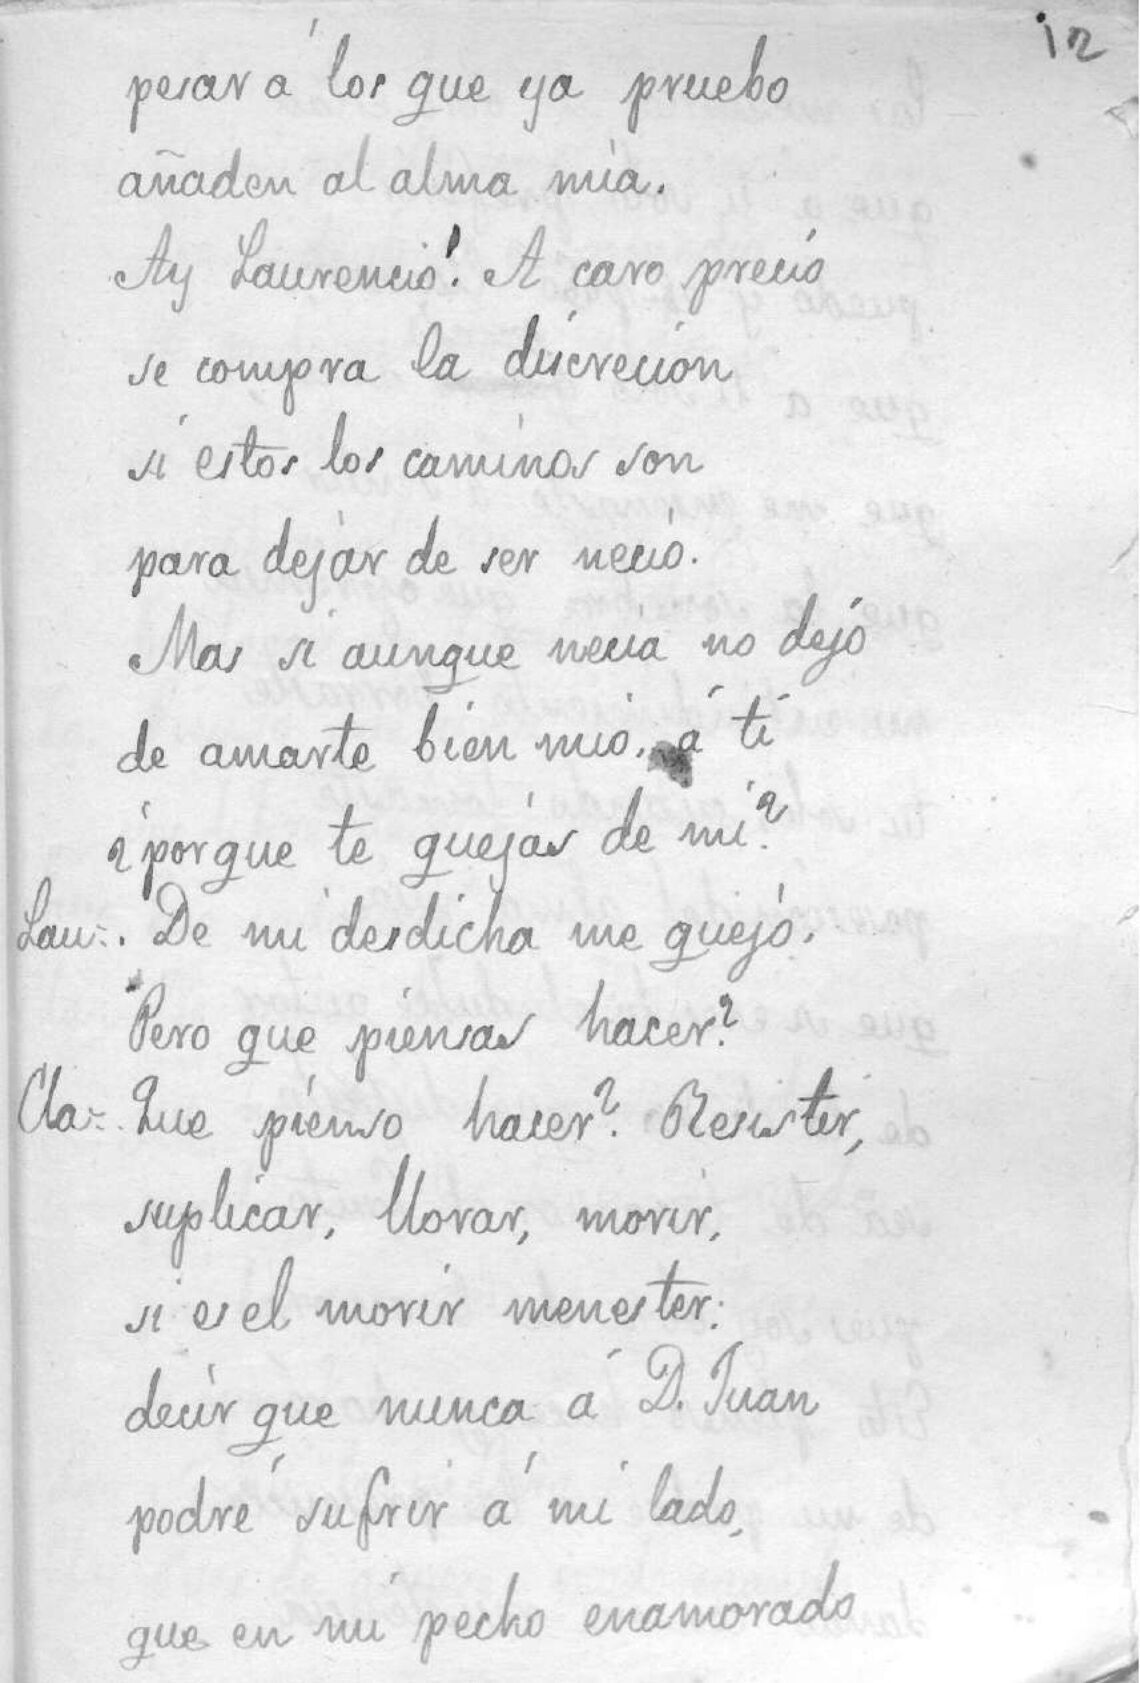 12
pesar á los que ya pruebo
añaden al alma mia.
Ay Laurencio! A caro precio
se compra la discrecion
si estos los caminos son
para dejar de ser necio.
Mas si aunque necia no dejo
de amarte bien mio, á ti
¿porque te quejas de mi?
Lau-. De mi desdicha me quejo.
Pero que piensas hacer?
Cla-. Que pienso hacer? Resistir,
suplicar, llorar, morir,
si es el morir menester:
decir que nunca á D. Juan
podré sufrir á mi lado,
que en mi pecho enamorado